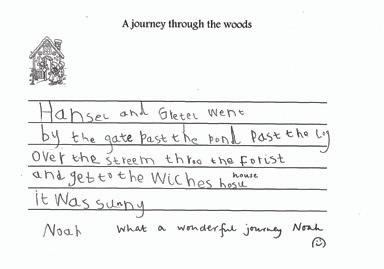 A journey through the woods
Hansel and Gretel went
by the gate past the pond past the log
over the streem throo the forist
and get to the Wiches hosu house
it Was sunny
Noah what a wonderful journey Noah